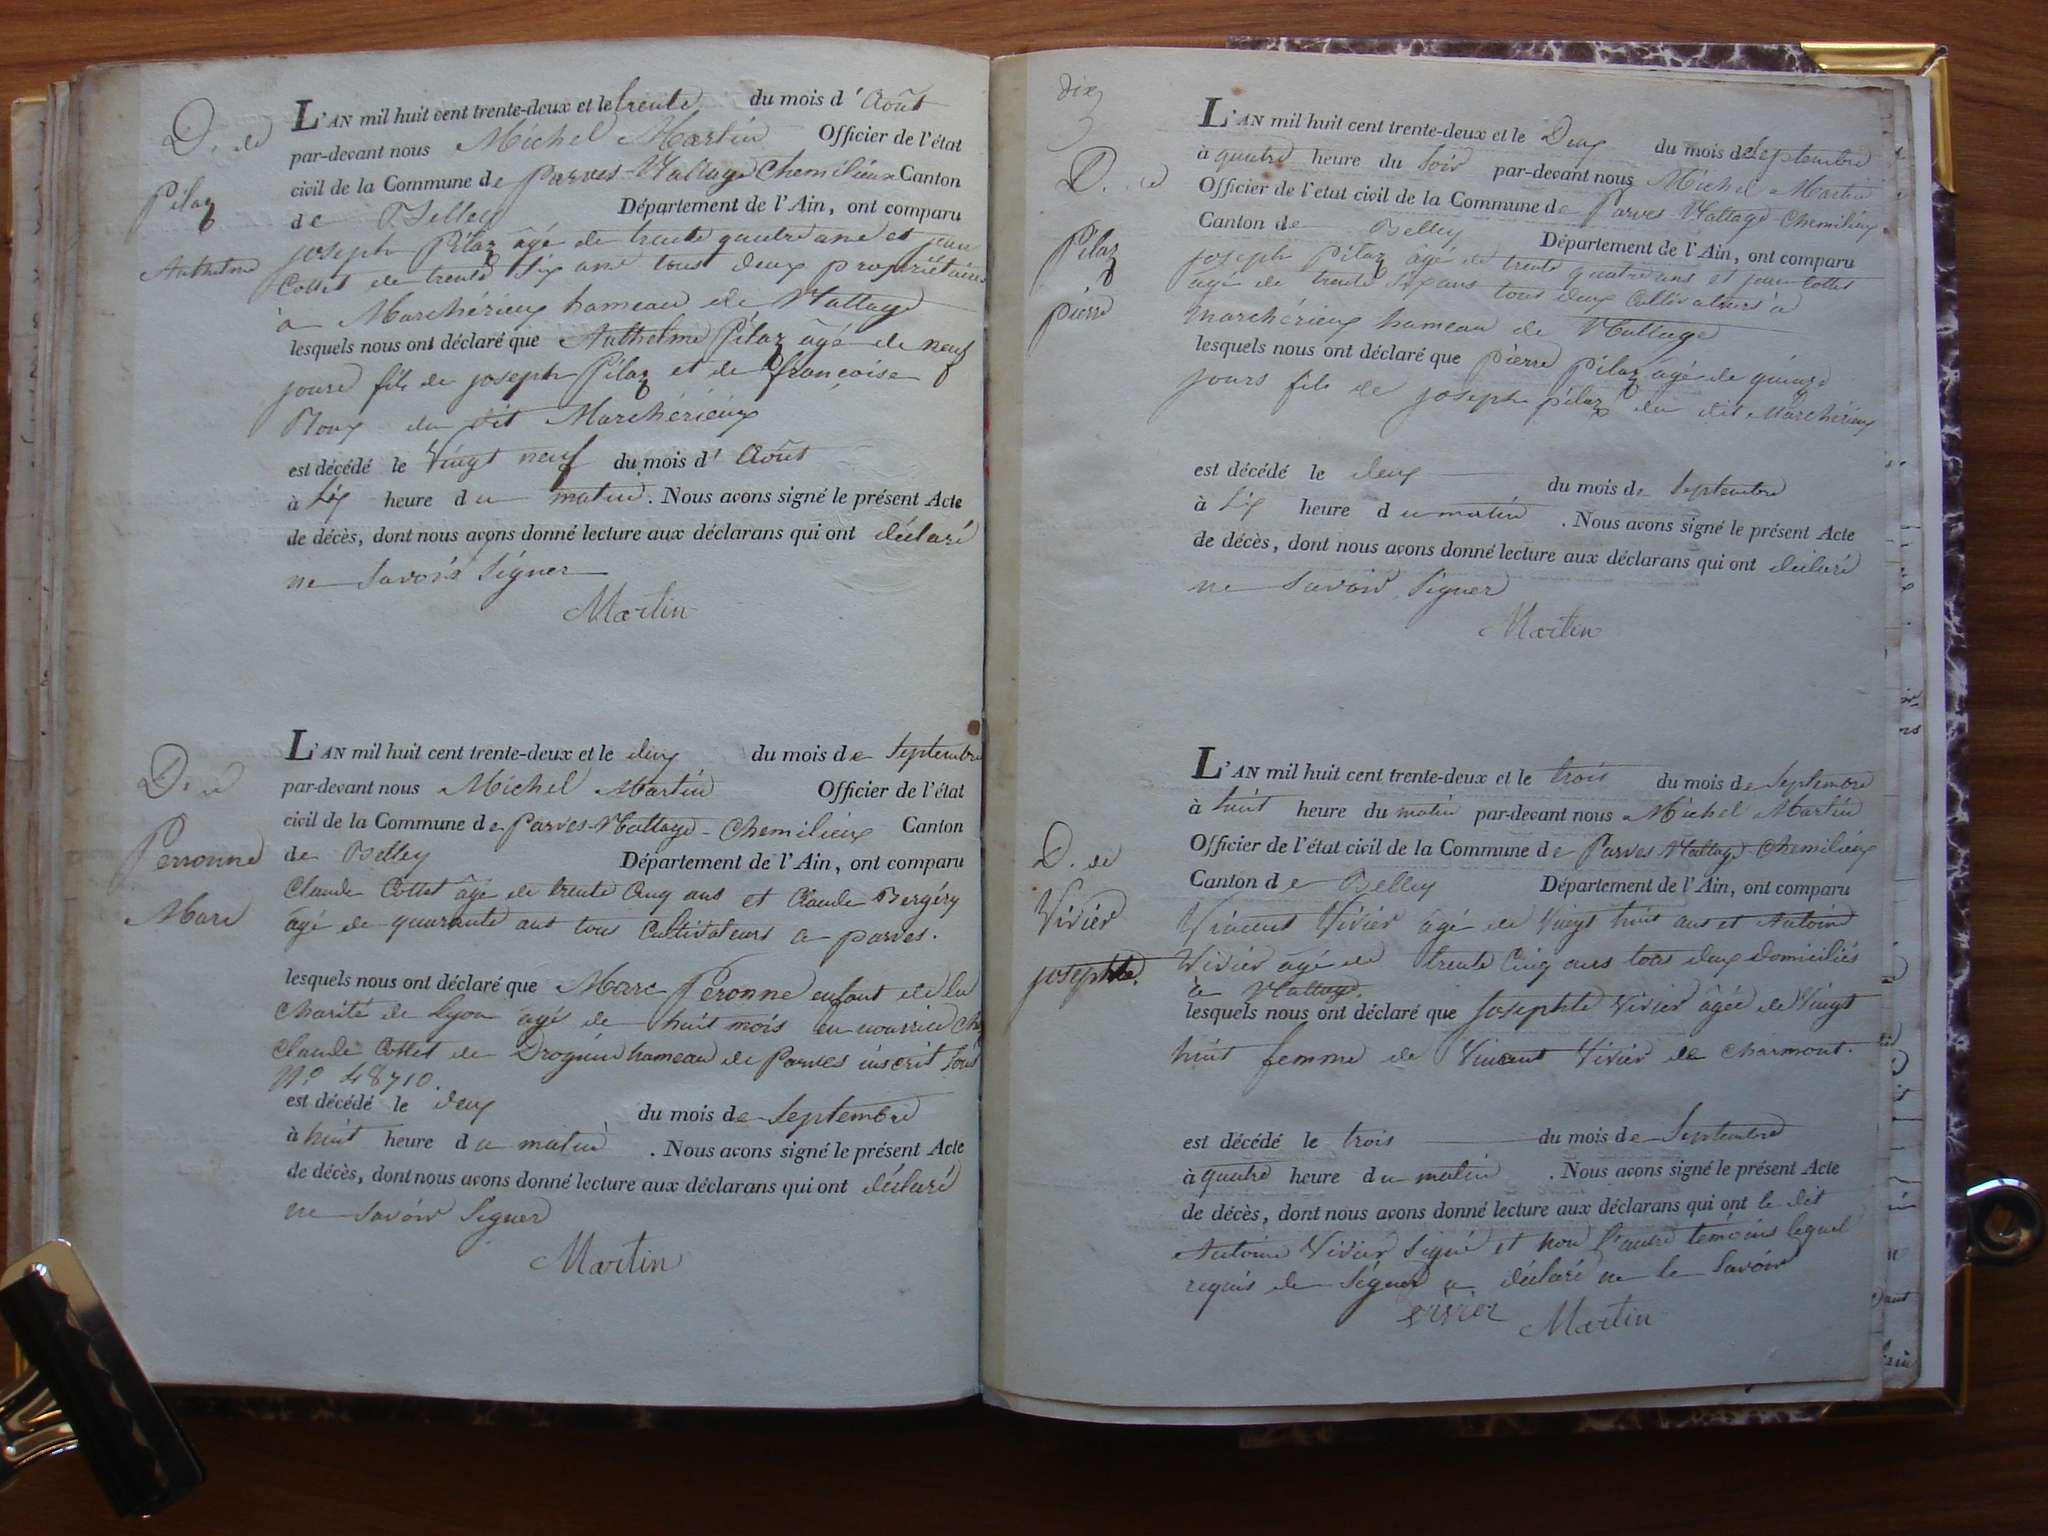 D. de
Pilaz
Anthelme
L'AN mil huit cent trente-deux et le trente du mois d' Août
par-devant nous Michel Martin Officier de l'état
civil de la Commune de Parves-Nattage Chemilieux Canton
de Belley Département de l'Ain, ont comparu
joseph Pilaz âgé de trente quatre ans et jean
Cottet de trente Six ans tous deux propriétaires
à Marchérieux hameau de Nattage
lesquels nous ont déclaré que Anthelme Pilaz âgé de neuf
jours fils de joseph Pilaz et de françoise
Roux du dit Marchérieux
est décédé le Vingt neuf du mois d' Août
à Six heure du matin. Nous avons signé le présent Acte
de décès, dont nous avons donné lecture aux déclarans qui ont déclaré
ne Savoir Signer
Martin
D. de
Peronne
Marc
L'AN mil huit cent trente-deux et le deux du mois de Septembre
par-devant nous Michel Martin Officier de l'état
civil de la Commune de Parves-Nattage-Chemilieux Canton
de Belley Département de l'Ain, ont comparu
Claude Cottet âgé de trente Cinq ans et Claude Bergéry
âgé de quarante ans tous Cultivateurs a parves.
lesquels nous ont déclaré que Marc Peronne enfant de la
Charité de Lyon âgé de huit mois en nourrice Chez
Claude Cottet de Drognin hameau de Parves inscrit Sous
N° 48710.
est décédé le deux du mois de Septembre
à huit heure du matin. Nous avons signé le présent Acte
de décès, dont nous avons donné lecture aux déclarans qui ont déclaré
ne Savoir Signer
Martin
dix
D. de
Pilaz
pierre
L'AN mil huit cent trente-deux et le Deux du mois de Septembre
à quatre heure du Soir par-devant nous Michel Martin
Officier de l'etat civil de la Commune de Parves Nattage Chemilieux
Canton de Belley Département de l'Ain, ont comparu
joseph Pilaz âgé de trente quatre ans et jean Cottet
âgé de trente Six ans tous deux Cultivateurs à
Marchérieux hameau de Nattage
lesquels nous ont déclaré que pierre Pilaz âgé de quinze
jours fils de joseph pilaz du dit Marchérieux
est décédé le deux du mois de Septembre
à Six heure du matin. Nous avons signé le présent Acte
de décès, dont nous avons donné lecture aux déclarans qui ont déclaré
ne Savoir Signer
Martin
D. de
Vivier
josephte.
L'AN mil huit cent trente-deux et le trois du mois de Septembre
à huit heure du matin par-devant nous Michel Martin
Officier de l'état civil de la Commune de Parves Nattage Chemilieux
Canton de Belley Département de l'Ain, ont comparu
Vincent Vivier âgé de Vingt huit ans et Antoine
Vivier âgé de trente Cinq ans tous deux domiciliés
a Nattage.
lesquels nous ont déclaré que Josephte Vivier âgée de Vingt
huit femme de Vincent Vivier de Charmont.
est décédé le trois du mois de Septembre
à quatre heure du matin. Nous avons signé le présent Acte
de décès, dont nous avons donné lecture aux déclarans qui ont le dit
Antoine Vivier Signé et non l'autre témoins lequel
requis de Signer a déclaré ne le Savoir
vivier Martin